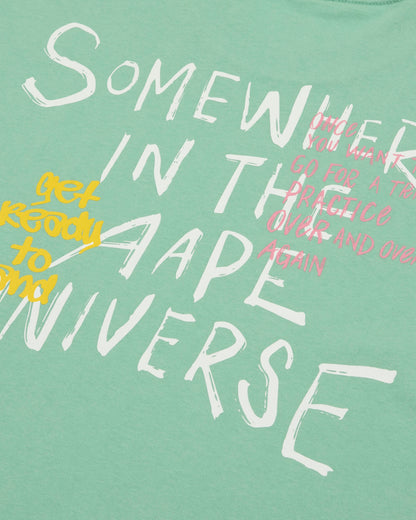 SOMEWHER
IN THE
AAPE
UNIVERSE
get
Ready
to
ONCE
YOU WANT
GO FOR A TR
PRACTICE
OVER AND OVE
AGAIN